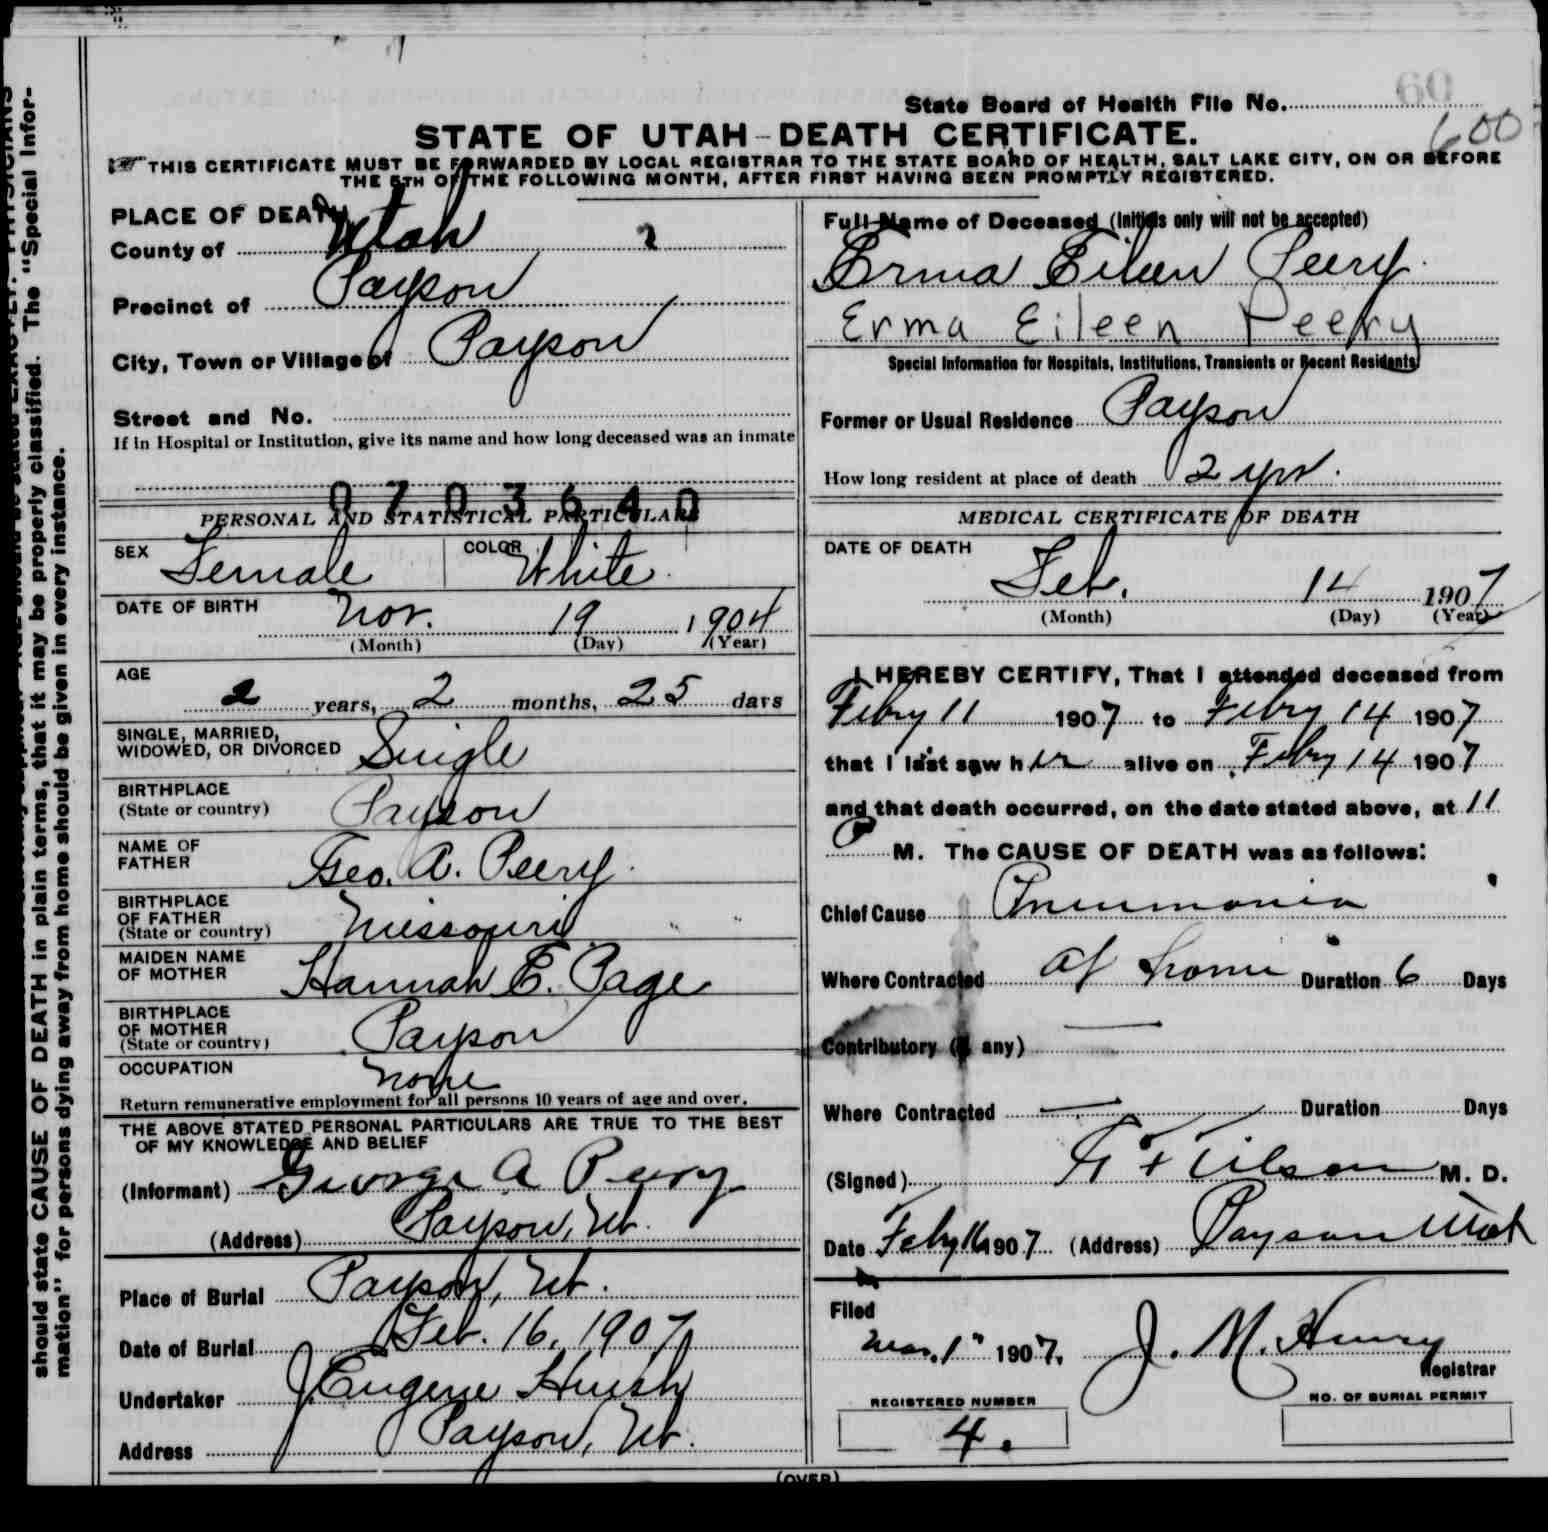 should state CAUSE OF DEATH in plain terms, that it may be properly classified. The "Special Infor-
mation" for persons dying away from home should be given in every instance.
60
State Board of Health File No.
600
STATE OF UTAH-DEATH CERTIFICATE.
THIS CERTIFICATE MUST BE FORWARDED BY LOCAL REGISTRAR TO THE STATE BOARD OF HEALTH, SALT LAKE CITY, ON OR BEFORE
THE 5TH OF THE FOLLOWING MONTH, AFTER FIRST HAVING BEEN PROMPTLY REGISTERED.
PLACE OF DEATH
County of Utah 2
Precinct of Payson
City, Town or Village of Payson
Street and No.
If in Hospital or Institution, give its name and how long deceased was an inmate
0703640
PERSONAL AND STATISTICAL PARTICULARS
SEX Female COLOR White
DATE OF BIRTH Nov. 19 1904
(Month) (Day) (Year)
AGE
2 years, 2 months, 25 days
SINGLE, MARRIED,
WIDOWED, OR DIVORCED Single
BIRTHPLACE
(State or country) Payson
NAME OF
FATHER Geo. A. Peery.
BIRTHPLACE
OF FATHER
(State or country) Missouri
MAIDEN NAME
OF MOTHER Hannah E. Page
BIRTHPLACE
OF MOTHER
(State or country) Payson
OCCUPATION None
Return remunerative employment for all persons 10 years of age and over.
THE ABOVE STATED PERSONAL PARTICULARS ARE TRUE TO THE BEST
OF MY KNOWLEDGE AND BELIEF
(Informant) George A Peery
(Address) Payson, Ut.
Place of Burial Payson, Ut.
Date of Burial Feb. 16, 1907
Undertaker J. Eugene Huish
Address Payson, Ut.
Full Name of Deceased (Initials only will not be accepted)
Erma Eileen Peery.
Erma Eileen Peery
Special Information for Hospitals, Institutions, Transients or Recent Residents
Former or Usual Residence Payson
How long resident at place of death 2 yrs.
MEDICAL CERTIFICATE OF DEATH
DATE OF DEATH
Feb. 14 1907
(Month) (Day) (Year)
I HEREBY CERTIFY, That I attended deceased from
Febry 11 1907 to Febry 14 1907
that I last saw her alive on Febry 14 1907
and that death occurred, on the date stated above, at 11
P M. The CAUSE OF DEATH was as follows:
Chief Cause Pneumonia
Where Contracted at home Duration 6 Days
Contributory (if any) —
Where Contracted — Duration Days
(Signed) Tilson M. D.
Date Feby 16 1907 (Address) Payson Utah
Filed
Mar. 1" 1907, J. M. Henry
Registrar
REGISTERED NUMBER
4.
NO. OF BURIAL PERMIT
(OVER)